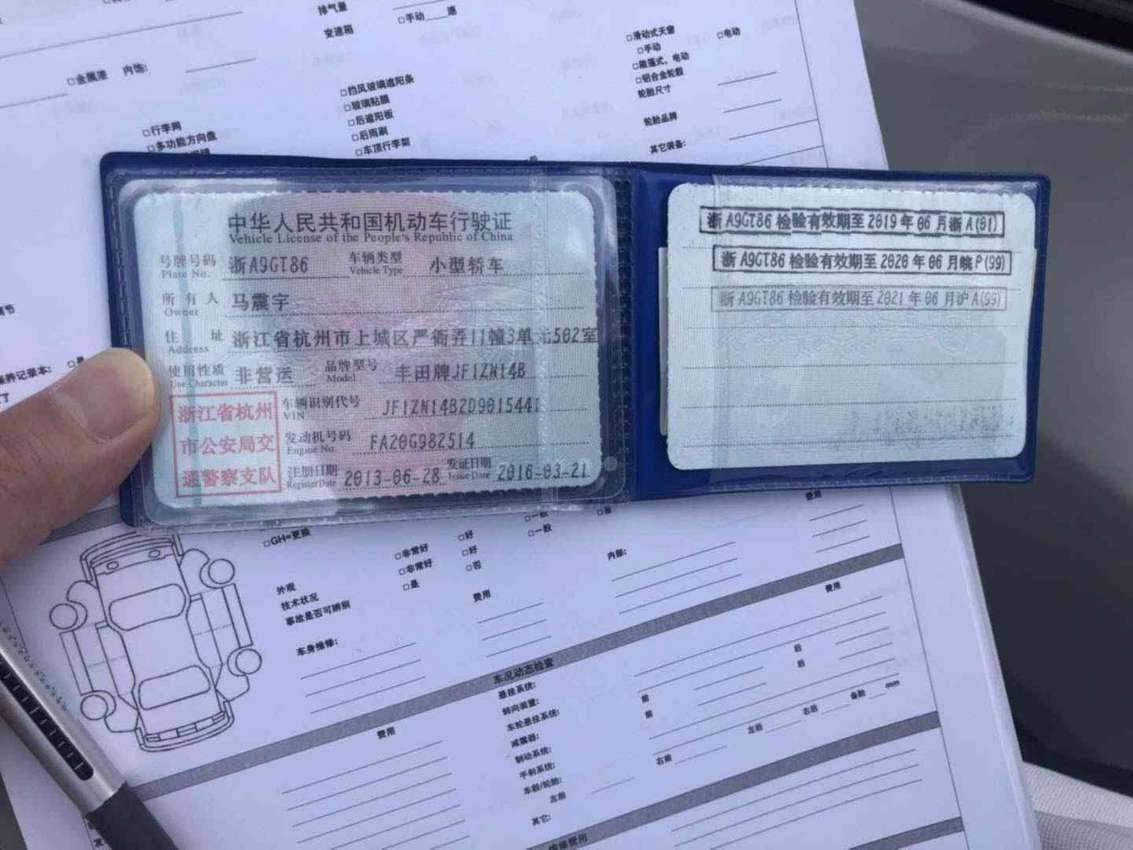 排气量
变速箱
□手动 速
□金属漆 内饰:
□滑动式天窗
□手动
□电动
□铝合金轮毂
轮胎尺寸
轮胎品牌
其它装备:
□挡风玻璃遮阳条
□玻璃贴膜
□后遮阳板
□后雨刷
□车顶行李架
□行李网
□多功能方向盘
中华人民共和国机动车行驶证
Vehicle License of the People's Republic of China
号牌号码 浙A9GT86 车辆类型 小型轿车
Plate No. Vehicle Type
所有人 马震宇
Owner
住址 浙江省杭州市上城区严衙弄11幢3单元502室
Address
使用性质 非营运 品牌型号 丰田牌JF1ZN14B
Use Character Model
浙江省杭州
市公安局交
通警察支队
车辆识别代号 JF1ZN14BZD9015441
VIN
发动机号码 FA20G982514
Engine No.
注册日期 2013-06-28 发证日期 2016-03-21
Register Date Issue Date
浙A9GT86 检验有效期至2019年06月浙A(01)
浙A9GT86 检验有效期至2020年06月皖P(99)
浙A9GT86 检验有效期至2021年06月沪A(93)
养记录本:
□GH=更换
外观 □非常好 □好 □一般
技术状况 □非常好 □好 □一般
事故是否可辨别 □是 □否
内部:
费用
费用
车身维修:
费用
车况动态检查
费用
悬挂系统:
转向装置:
车轮悬挂系统:
减震器:
制动系统:
手刹系统:
车毂/轮胎:
前 后
前 后
左前 右前 左后 右后 备胎 mm
其它:
费用
维修费用